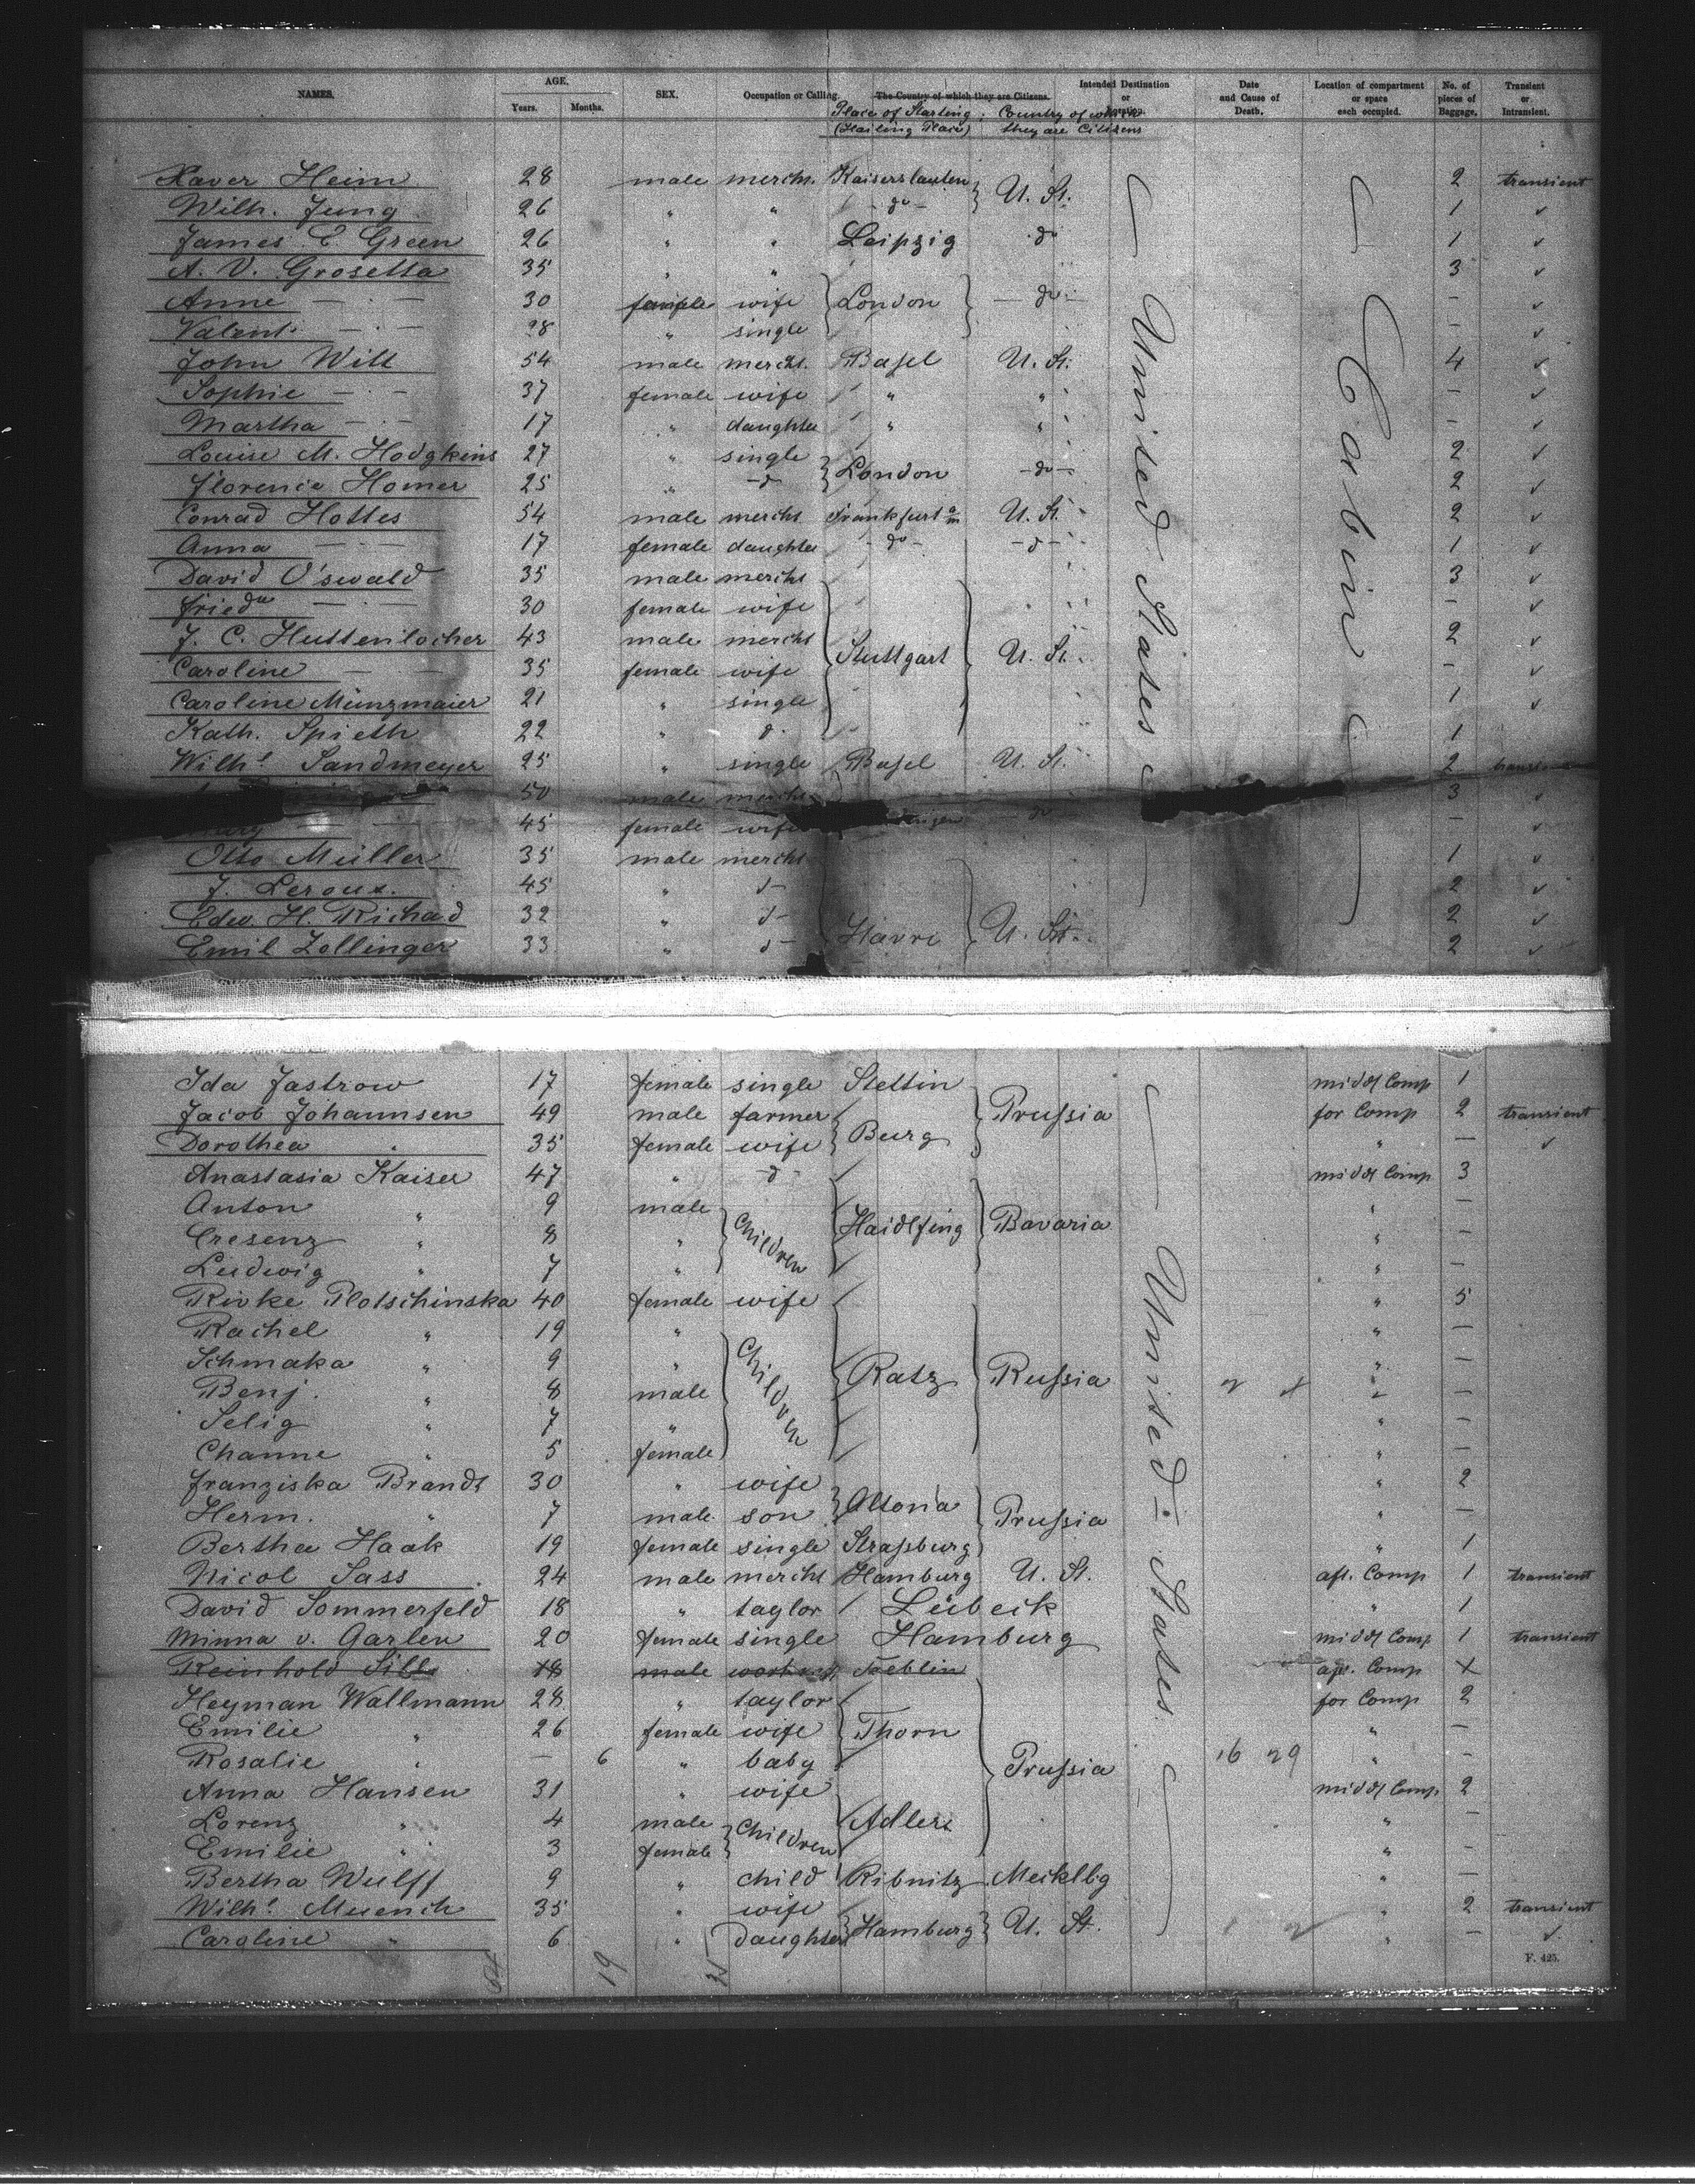 NAMES. AGE. Years. Months. SEX. Occupation or Calling. The Country of which they are Citizens. Intended Destination or Location. Date and Cause of Death. Location of compartment or space each occupied. No. of pieces of Baggage. Transient or Intransient.
Place of Starting (Hailing Place) Country of which they are Citizens
Xaver Heim 28 male mercht. Kaiserslautern U. St. 2 transient
Wilh. Jung 26 " " - do - 1 ✓
James E. Green 26 " " Leipzig do 1 ✓
A. V. Grosetta 35 " " 3 ✓
Anne — · — 30 female wife London — do — - ✓
Valent. — · — 28 " single - ✓
John Will 54 male mercht. Basel U. St. 4 ✓
Sophie — · — 37 female wife " " - ✓
Martha — · — 17 " daughter " " - ✓
Louise M. Hodgkins 27 " single 2 ✓
Florence Homer 25 " - d - London - do - 2 ✓
Conrad Hottes 54 male mercht Frankfurt a/m U. St. 2 ✓
Anna — · — 17 female daughter - do - - d - 1 ✓
David O'swald 35 male mercht 3 ✓
Fried^ke — · — 30 female wife - ✓
J. C. Huttenlocher 43 male mercht 2 ✓
Caroline — — 35 female wife Stuttgart U. St. - ✓
Caroline Münzmaier 21 " single 1 ✓
Kath. Spieth 22 " d. 1
Wilh^e. Sandmeyer 25 " single Basel U. St. 2 transient
50 male mercht 3 ✓
Mary — 45 female wife do - ✓
Otto Müller 35 male mercht 1 ✓
J. Leroux. 45 " d - 2 ✓
Edw. H. Richad 32 " d - 2 ✓
Emil Zollinger 33 " d - Havre U. St. 2 ✓
United States
Cabin
Ida Jastrow 17 female single Stettin middl Comp 1
Jacob Johannsen 49 male farmer Prussia for Comp 2 transient
Dorothea " 35 female wife Burg " — ✓
Anastasia Kaiser 47 " - d - middl Comp 3
Anton " 9 male " —
Cresenz " 8 " Children Haidlfing Bavaria " —
Ludwig " 7 " " —
Rivke Plotschinska 40 female wife " 5
Rachel " 19 " " —
Schmaka " 9 " " —
Benj. " 8 male Children Ratz Russia " —
Selig " 7 " " —
Channe " 5 female " —
Franziska Brandt 30 " wife " 2
Herm. " 7 male son Altona Prussia " —
Bertha Haak 19 female single Strassburg " 1
Nicol Sass 24 male mercht Hamburg U. St. aft. Comp 1 transient
David Sommerfeld 18 " taylor Lübeck " 1
Minna v. Garlen 20 female single Hamburg middl Comp 1 transient
Reinhold Sill 18 male aft. Comp X
Heyman Wallmann 28 " taylor for Comp 2
Emilie " 26 female wife Thorn " —
Rosalie " — 6 " baby Prussia 16 29 " —
Anna Hansen 31 " wife middl Comp. 2
Lorenz " 4 male Children " —
Emilie " 3 female " —
Bertha Wulff 9 " child Ribnitz Mecklbg " —
Wilh^e. Muench 35 " wife " 2 transient
Caroline " 6 " daughter Hamburg U. St. " — ✓
United States
19
F. 425.